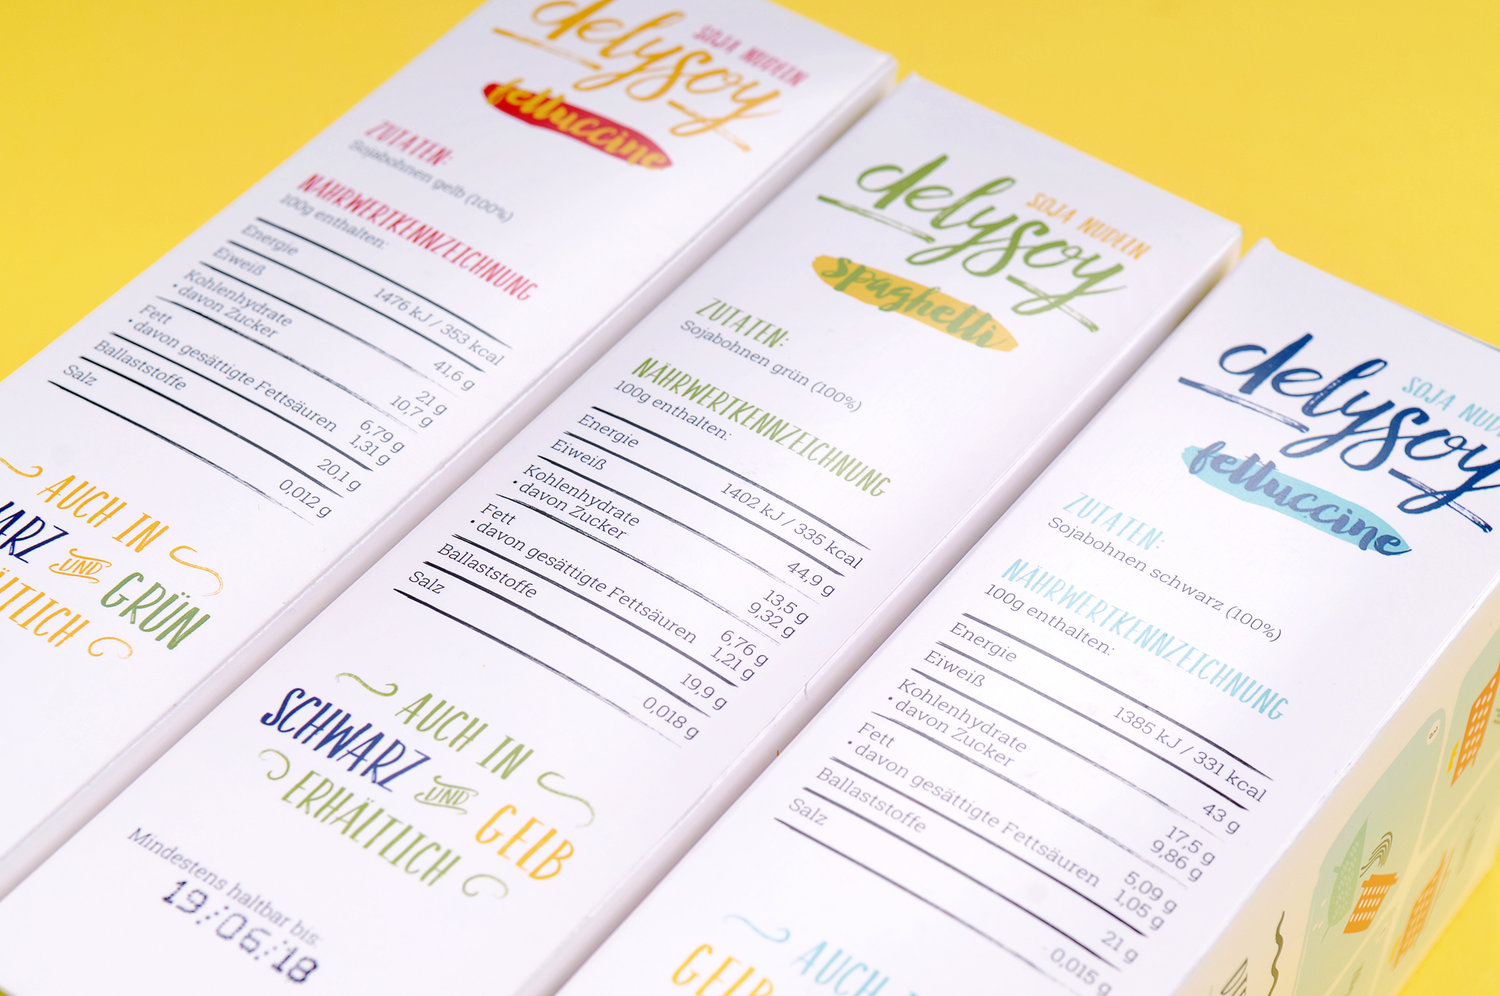 delysoy
SOJA NUDELN
fettuccine
ZUTATEN:
Sojabohnen gelb (100%)
NÄHRWERTKENNZEICHNUNG
100g enthalten:
Energie 1476 kJ / 353 kcal
Eiweiß 41,6 g
Kohlenhydrate 21 g
• davon Zucker 10,7 g
Fett 6,79 g
• davon gesättigte Fettsäuren 1,31 g
Ballaststoffe 20,1 g
Salz 0,012 g
AUCH IN
UND GRÜN
delysoy
SOJA NUDELN
spaghetti
ZUTATEN:
Sojabohnen grün (100%)
NÄHRWERTKENNZEICHNUNG
100g enthalten:
Energie 1402 kJ / 335 kcal
Eiweiß 44,9 g
Kohlenhydrate 13,5 g
• davon Zucker 9,32 g
Fett 6,76 g
• davon gesättigte Fettsäuren 1,21 g
Ballaststoffe 19,9 g
Salz 0,018 g
AUCH IN
SCHWARZ UND GELB
ERHÄLTLICH
Mindestens haltbar bis:
19/06/18
delysoy
SOJA
fettuccine
ZUTATEN:
Sojabohnen schwarz (100%)
NÄHRWERTKENNZEICHNUNG
100g enthalten:
Energie 1385 kJ / 331 kcal
Eiweiß 43 g
Kohlenhydrate 17,5 g
• davon Zucker 9,86 g
Fett 5,09 g
• davon gesättigte Fettsäuren 1,05 g
Ballaststoffe 21 g
Salz 0,015 g
AUCH
GELB